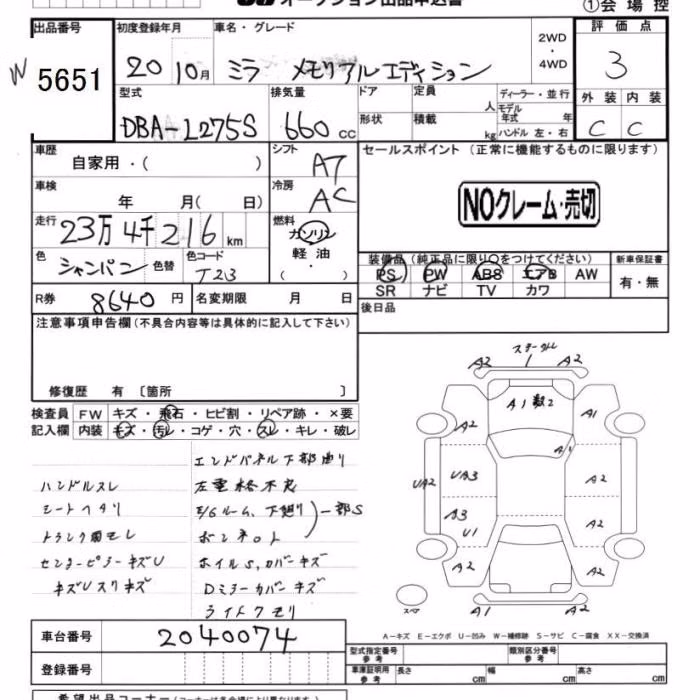 オークション出品申込書
①会場控
出品番号 初度登録年月 車名・グレード 評価点
W 5651 20 10月 ミラ メモリアルエディション 2WD・4WD 3
型式 排気量 ドア 定員 人 ディーラー・並行 外装 内装
DBA-L275S 660 cc 形状 積載 kg モデル年式 年 ハンドル 左・右 C C
車歴 自家用・( ) シフト AT セールスポイント (正常に機能するものに限ります)
車検 年 月( 日) 冷房 AC NOクレーム・売切
走行 23万4千216 km 燃料 ガソリン・軽油・( )
色 シャンパン 色替 色コード T23 装備品(純正品に限り○をつけてください) 新車保証書
PS PW ABS エアB AW 有・無
SR ナビ TV カワ
R券 8640 円 名変期限 月 日 後日品
注意事項申告欄(不具合内容等は具体的に記入して下さい)
修復歴 有 〔箇所 〕
検査員記入欄 FW キズ・飛石・ヒビ割・リペア跡・×要
内装 キズ・汚レ・コゲ・穴・スレ・キレ・破レ
エンドパネル下部曲り
ハンドルスレ
シートヘタリ
下廻り 一部S
ボンネット
ホイルS,カバーキズ
キズUスリキズ
Dミラーカバーキズ
ライトクモリ
A2 A2
A1 A2 A1
A1
UA2 UA3 A2
A3 U1 A2
A2 A2
スペア A1 A2
A-キズ E-エクボ U-凹み W-補修跡 S-サビ C-腐食 XX-交換済
車台番号 2040074
登録番号
型式指定番号 参考 類別区分番号 参考
車庫証明用 参考 長さ cm 幅 cm 高さ cm
希望出品コーナー